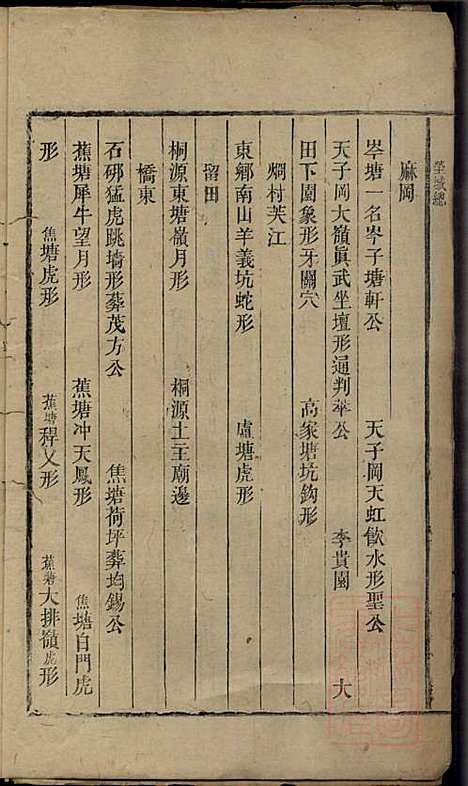 塋域總
麻岡
岑塘一名岑子塘軒公　天子岡天虹飮水形聖公
天子岡大嶺眞武坐壇形通判華公　李貴園　大
田下園象形牙關穴　高家塘坑鈎形
烱村芙江
東鄉南山羊義坑蛇形　盧塘虎形
留田
桐源東塘嶺月形　桐源土主廟邊
橋東
石硎猛虎跳墻形葬茂方公　焦塘荷坪葬均錫公
蕉塘犀牛望月形　蕉塘冲天鳳形　焦塘白門虎
形　焦塘虎形　蕉塘稈乂形　蕉塘大排嶺虎形